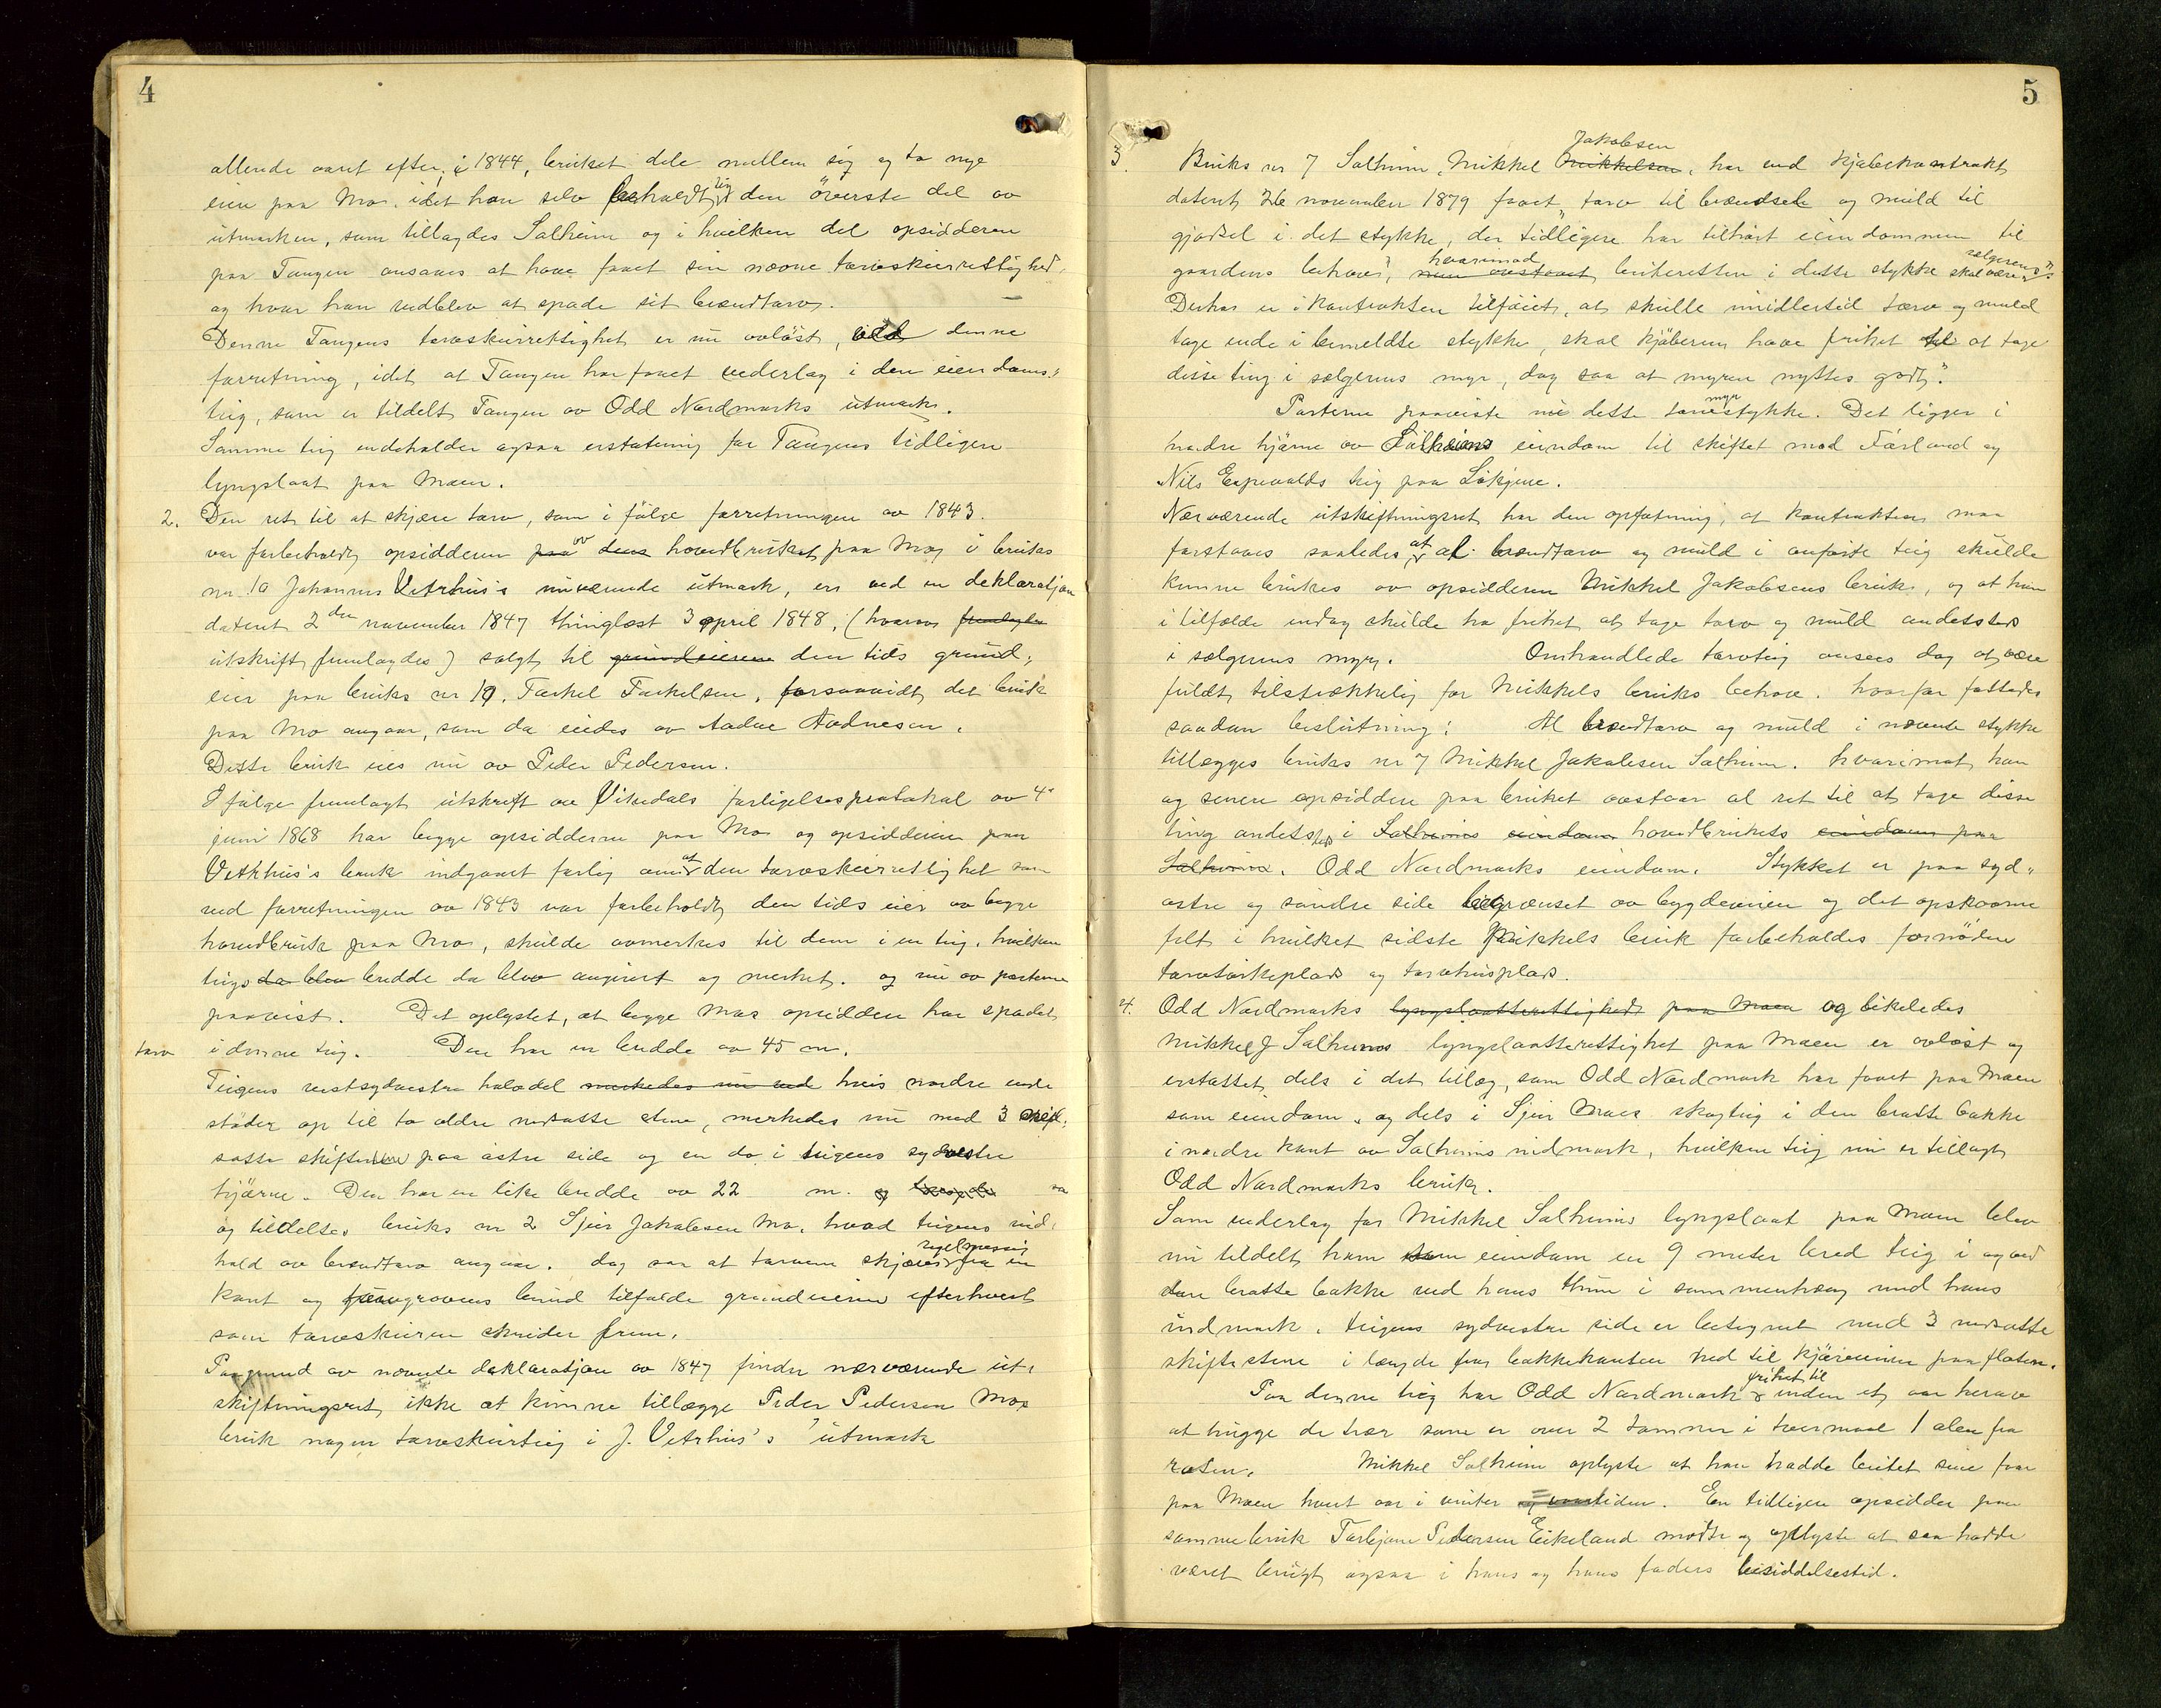 4
allerede aaret efter, i 1844, bruket dele mellem sig og to nye
eiere paa Mo, idet han selv beholdt sig den överste del av
utmarken, som tillagdes Salheim og i hvilken del opsidderen
paa Tangen ansaaes at have faaet sin nævne torvskurrettighed,
og hvor han vedblev at spade sit brændtorv.
Denne Tangens torvskurrettighet er nu avlöst, ved denne
forretning, idet at Tangen har faaet vederlag i den eiendoms-
teig, som er tildelt Tangen av Odd Nordmarks utmark.
Samme teig indeholder ogsaa erstatning for Tangens tidligere
lyngslaat paa Moen.
2. Den ret til at skjære torv, som i fölge forretningen av 1843
var forbeholdt opsidderen paa av dens hovedbruket paa Mo, i bruks
nr 10 Johannes Vetrhus's nuværende utmark, er ved en deklaration
dateret 2den november 1847 thinglæst 3 april 1848, (hvorav fremlagdes
utskrift fremlagdes) solgt til grundeieren den tids grund-
eier paa bruks nr 10, Torkel Torkelsen, forsaavidt det bruk
paa Mo angaar, som da eiedes av Aadne Aadnesen.
Dette bruk eies nu av Peder Pedersen.
I fölge fremlagt utskrift av Vikedals forligelsesprotokol av 4de
juni 1868 har begge opsidderne paa Mo og opsidderen paa
Vetrhus's bruk indgaaet forlig om at den torvskurrettighet som
ved forretningen av 1843 var forbeholdt den tids eier av begge
hovedbruk paa Mo, skulde avmerkes til dem i en teig, hvilken
teigs da blev bredde da blev angivet og merket, og nu av parterne
paavist. Det oplystes, at begge Moes opsiddere har spadet
torv i denne teig. Den har en bredde av 45 m.
Teigens vestsydvestre halvdel merkedes nu ved hvis nordre ende
stöder op til to ældre nedsatte stene, merkedes nu med 3 ned-
satte skiftestene paa östre side og en do i teigens sydvestre
hjörne. Den har en like bredde av 22 m. og
og tildeltes bruks nr 2 Sjur Jakobsen Mo, hvad teigens ind-
hold av brændtorv angaar, dog saa at torven skjæres regelmessig fra en
kant og torvgrovens bund tilfalde grundeieren efterhvert
som torvskuren skrider frem.
Paa grund av nævnte deklaration av 1847 finder nærværende ut-
skiftningsret ikke at kunne tillægge Peder Pedersen Moes
bruk nogen torvskurteig i J. Vetrhus's utmark
5
3. Bruks nr 7 Salheim, Mikkel Mikkelsen Jakobsen, har ved kjöbekontrakt
dateret 26 november 1879 faaet "torv til brændsel og muld til
gjödsel i det stykke, der tidligere har tilhört eiendommen til
gaardens behov", hvorimod beiteretten i dette stykke skal være sælgerens".
Derhos er i kontrakten tilföiet, at skulle imidlertid torv og muld
tage ende i bemeldte stykke, skal kjöberen have frihet til at tage
disse ting i sælgerens myr, dog saa at myren nyttes godt."
Parterne paaviste nu dette torvmyrstykke. Det ligger i
nordre hjörne av Salheims eiendom til skiftet mod Förland og
Nils Espevolds teig paa Lökjene.
Nærværende utskiftningsret har den opfatning, at kontrakten maa
forstaaes saaledes at al brændtorv og muld i anförte teig skulde
kunne brukes av opsidderen Mikkel Jakobsens bruk, og at han
i tilfælde endog skulde ha frihet at tage torv og muld andetsteds
i sælgerens myr. Omhandlede torvteig ansees dog at være
fuldt tilstrækkelig for Mikkels bruks behov, hvorfor fattedes
saadan beslutning: Al brændtorv og muld i nævnte stykke
tillægges bruks nr 7 Mikkel Jakobsen Salheim, hvorimot han
og senere opsiddere paa bruket avstaar al ret til at tage disse
ting andetsteds i Salheims eiendom hovedbrukets eiendom paa
Salheim. Odd Nordmarks eiendom. Stykket er paa syd-
östre og söndre side begrænset av bygdeveien og det opskaarne
felt i hvilket sidste Mikkels bruk forbeholdes fornöden
torvtörkeplads og torvhusplads.
4. Odd Nordmarks lyngslaatterettighed paa Moen og likeledes
Mikkel J Salheims lyngslaatterettighet paa Moen er avlöst og
erstattet dels i det tillæg, som Odd Nordmark har faaet paa Moen
som eiendom, og dels i Sjur Moes skogteig i den bratte bakke
i nordre kant av Salheims indmark, hvilken teig nu er tillagt
Odd Nordmarks bruk.
Som vederlag for Mikkel Salheims lyngslaat paa Moen blev
nu tildelt ham som eiendom en 9 meter bred teig i og ved
den bratte bakke ved hans thun i sammenhæng med hans
indmark. Teigens sydvestre side er betegnet med 3 nedsatte
skiftestene i længde fra bakkekanten ned til kjöreveien paa flaten.
Paa denne teig har Odd Nordmark frihet til inden et aar herav
at hugge de trær som er over 2 tommer i tvermaal 1 alen fra
roten. Mikkel Salheim oplyste at han hadde beitet sine faar
paa Moen hvert aar i vinter og vaartiden. En tidligere opsidder paa
samme bruk Torbjørn Pedersen Eikeland mödte og oplyste at saa hadde
været brugt ogsaa i hans og hans faders besiddelsestid.